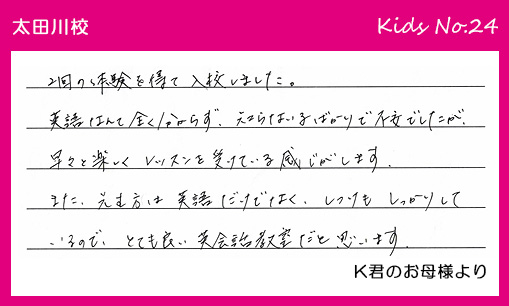 太田川校
Kids No.24
2回の体験を得て入校しました。
英語なんて全く分からず、知らない子ばかりで不安でしたが、
早々と楽しくレッスンを受けている感じがします。
また、先生方は英語だけでなく、しつけもしっかりして
いるので、とても良い英会話教室だと思います。
K君のお母様より